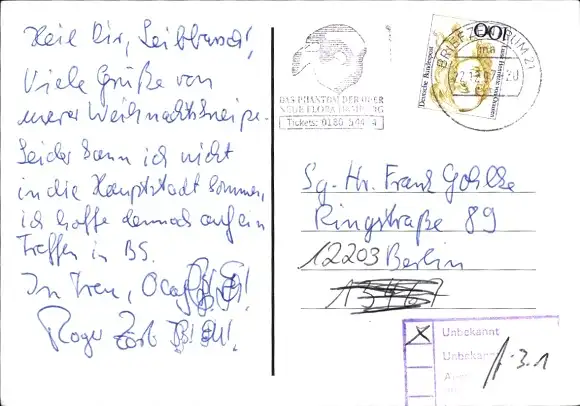 Heil Dir, Leibbursch!,
Viele Grüße von
unserer Weihnachtskneipe.
Leider kann ich nicht
in die Hauptstadt kommen,
ich hoffe demnach auf ein
Treffen in BS.
In Treu,
Roger Zörb
DAS PHANTOM DER OPER
NEUE FLORA HAMBURG
Tickets: 0180 544 4
100
Deutsche Bundespost
BRIEFZENTRUM 21
Sg. Hr. Frank Gohlke
Ringstraße 89
12203 Berlin
Unbekannt